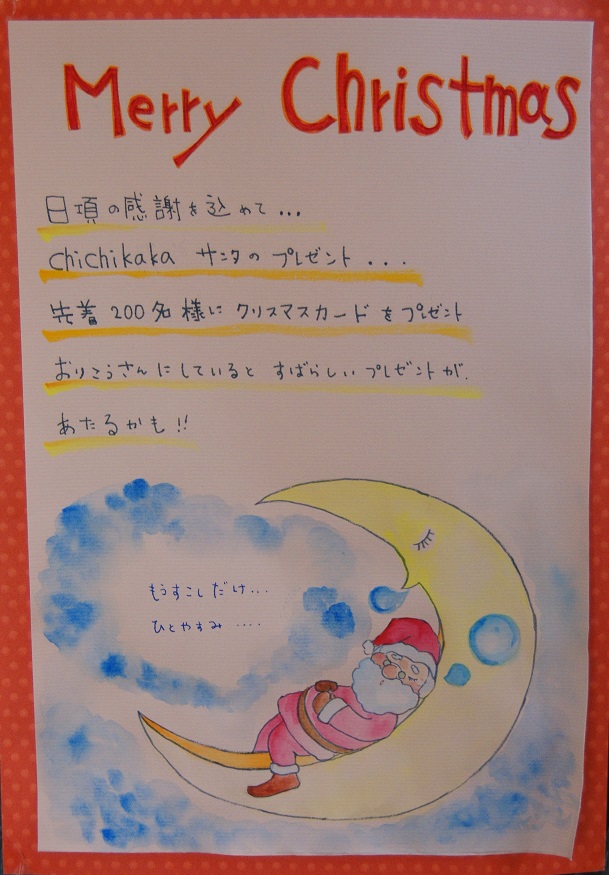 Merry Christmas
日頃の感謝を込めて...
chichikaka サンタの プレゼント ...
先着 200名様に クリスマスカード を プレゼント
おりこうさんにしていると すばらしい プレゼントが.
あたるかも!!
もうすこしだけ...
ひとやすみ ....